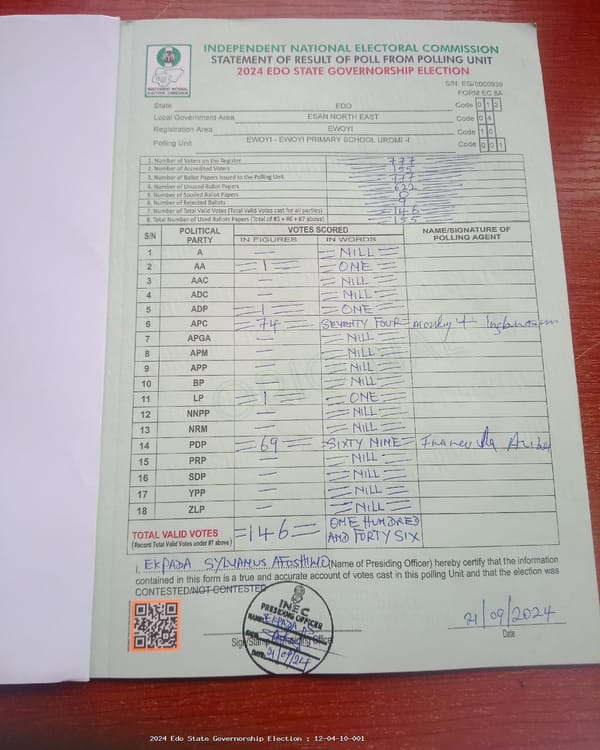 INDEPENDENT NATIONAL ELECTORAL COMMISSION
STATEMENT OF RESULT OF POLL FROM POLLING UNIT
2024 EDO STATE GOVERNORSHIP ELECTION
S/N: EG/0000939
FORM EC 8A
State EDO Code 012
Local Government Area ESAN NORTH EAST Code 04
Registration Area EWOYI Code 10
Polling Unit EWOYI - EWOYI PRIMARY SCHOOL UROMI -4 Code 001
1. Number of Voters on the Register 777
2. Number of Accredited Voters 155
3. Number of Ballot Papers Issued to the Polling Unit 777
4. Number of Unused Ballot Papers 622
5. Number of Spoiled Ballot Papers 0
6. Number of Rejected Ballots 9
7. Number of Total Valid Votes (Total Valid Votes cast for all parties) 146
8. Total Number of Used Ballots Papers (Total of #5 + #6 + #7 above) 155
S/N POLITICAL PARTY VOTES SCORED NAME/SIGNATURE OF POLLING AGENT
IN FIGURES IN WORDS
1 A — NILL
2 AA 1 ONE
3 AAC — NILL
4 ADC — NILL
5 ADP 1 ONE
6 APC 74 SEVENTY FOUR
7 APGA — NILL
8 APM — NILL
9 APP — NILL
10 BP — NILL
11 LP 1 ONE
12 NNPP — NILL
13 NRM — NILL
14 PDP 69 SIXTY NINE
15 PRP — NILL
16 SDP — NILL
17 YPP — NILL
18 ZLP — NILL
TOTAL VALID VOTES 146 ONE HUNDRED AND FORTY SIX
(Record Total Valid Votes under #7 above)
I, EKPADA SYLVANUS (Name of Presiding Officer) hereby certify that the information
contained in this form is a true and accurate account of votes cast in this polling Unit and that the election was
CONTESTED/NOT CONTESTED
INEC
PRESIDING OFFICER
NAME: EKPADA
DATE: 21/09/24
Sign/Stamp of Presiding Officer
21/09/2024
Date
2024 Edo State Governorship Election : 12-04-10-001